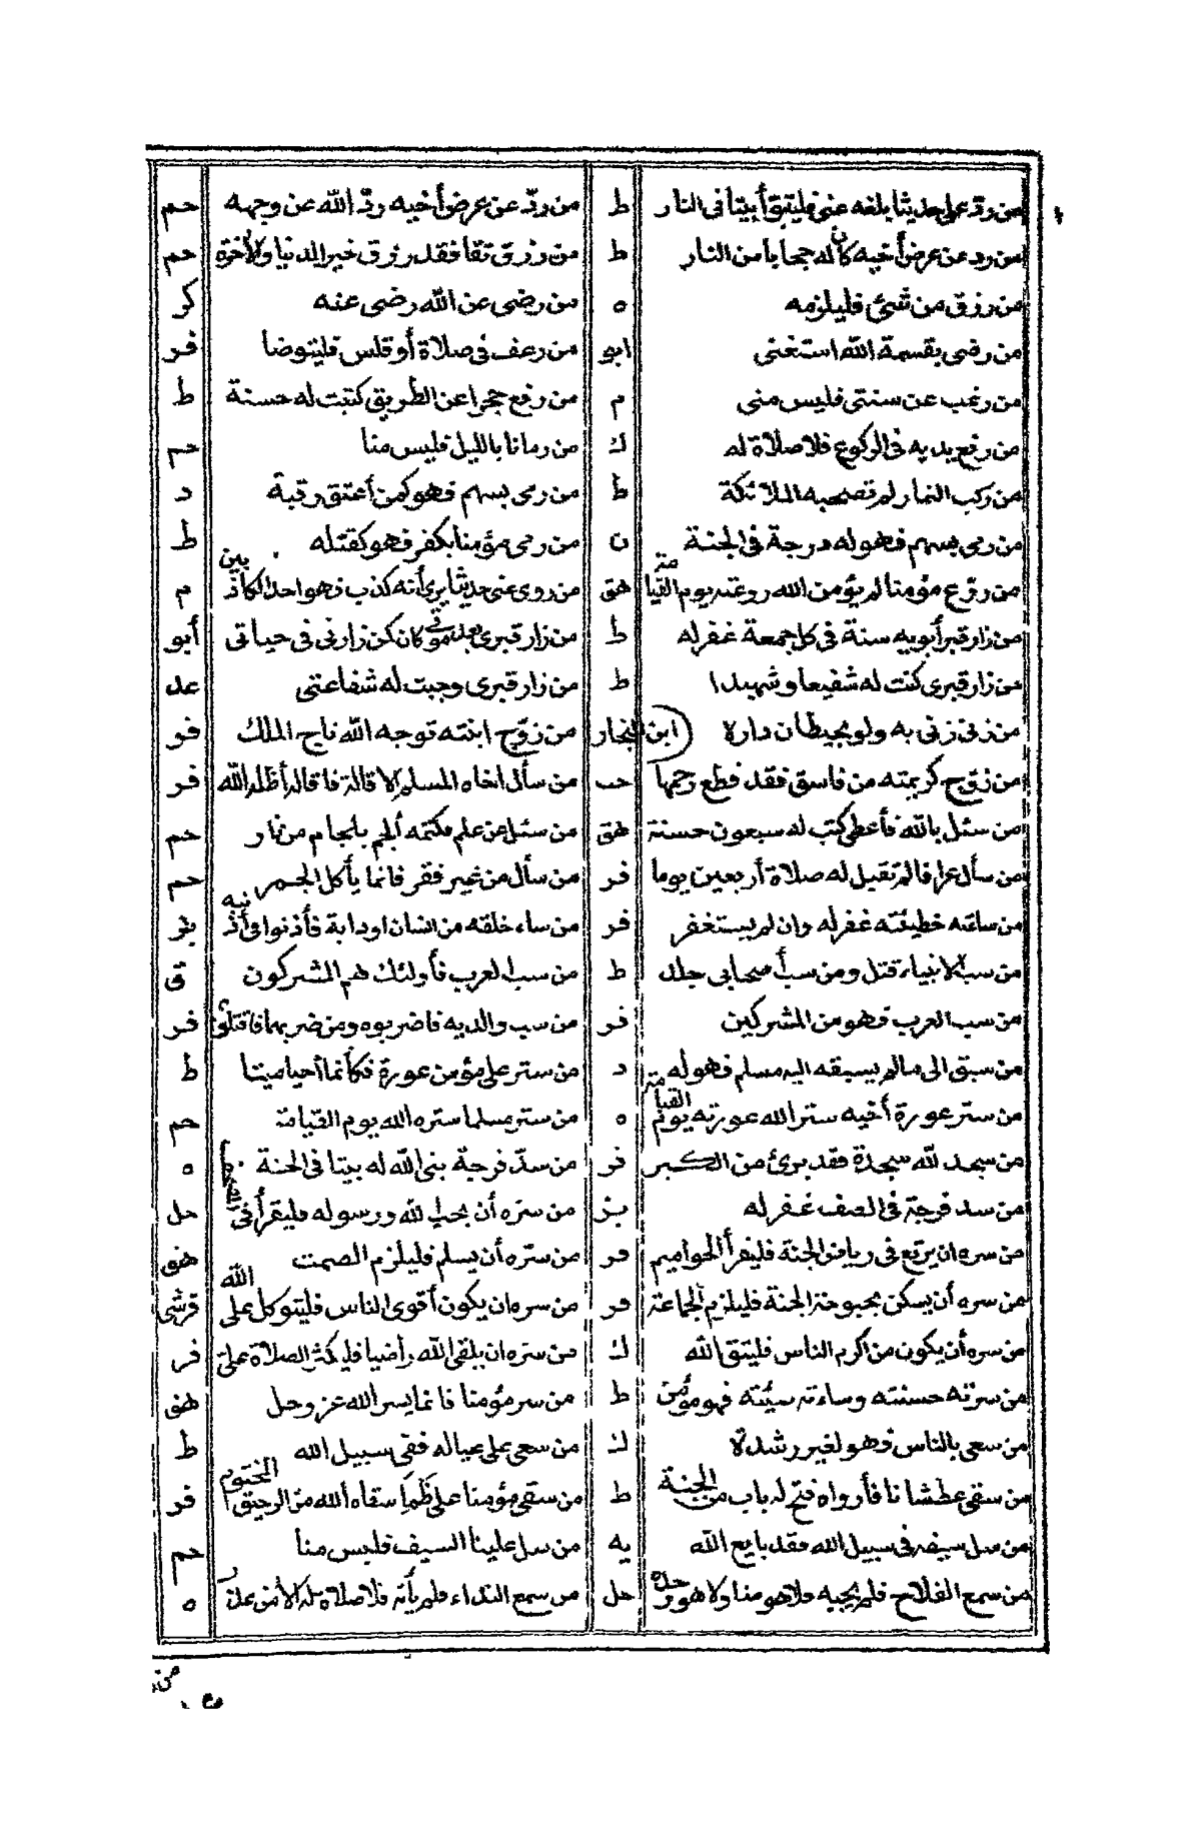 من ردّ على حديثا بلغه عنى فليتبوّأ بيتا فى النار ط من ردّ عن عرض أخيه ردّ الله عن وجهه حم
من رد عن عرض أخيه كان له حجابا من النار ط من رزق تقا فقد رزق خير الدنيا والآخرة حم
من رزق من شئ فليلزمه ه من رضى عن الله رضى عنه كر
من رضى بقسمة الله استغنى ابو من رعف فى صلاة أو قلس فليتوضا فر
من رغب عن سنتى فليس منى م من رفع حجرا عن الطريق كتبت له حسنة ط
من رفع يديه فى الركوع فلا صلاة له ك من رمانا بالليل فليس منا حم
من ركب النمار لم تصحبه الملائكة ط من رمى بسهم فهو كمن أعتق رقبة د
من رمى بسهم فهو له درجة فى الجنة ن من رمى مؤمنا بكفر فهو كقتله ط
من روّع مؤمنا لم يؤمن الله روعته يوم القيامة هق من روى عنى حديثا يرى أنه كذب فهو احد الكاذبين م
من زار قبر أبويه سنة فى كل جمعة غفر له ط من زار قبرى بعد موتى كان كمن زارنى فى حياتى أبو
من زار قبرى كنت له شفيعا وشهيدا ط من زار قبرى وجبت له شفاعتى عد
من زنى زنى به ولو بحيطان داره ابن النجار من زوّج ابنته توجه الله تاج الملك فر
من زوّج كريمته من فاسق فقد قطع رحمها حب من سأل اخاه المسلم الاقالة فاقاله أظله الله فر
من سئل بالله فأعطى كتب له سبعون حسنة هق من سئل عن علم فكتمه ألجم بلجام من نار حم
من سأل عرافا لم تقبل له صلاة أربعين يوما فر من سأل من غير فقر فانما يأكل الجمر حم
من ساءته خطيئته غفر له وان لم يستغفر فر من ساء خلقه من انسان او دابة فأذنوا فى أذنيه
من سب الانبياء قتل ومن سب أصحابى جلد ط من سب العرب فأولئك هم المشركون ق
من سب العرب فهو من المشركين فر من سب والديه فاضربوه ومن ضربهما فاقتلوه فر
من سبق الى ما لم يسبقه اليه مسلم فهو له د من ستر على مؤمن عورة فكأنما أحيا ميتا ط
من ستر عورة أخيه ستر الله عورته يوم القيامة ه من ستر مسلما ستره الله يوم القيامة حم
من سجد لله سجدة فقد برئ من الكبر فر من سدّ فرجة بنى الله له بيتا فى الجنة ه
من سد فرجة فى الصف غفر له بز من سرّه أن يحب الله ورسوله فليقرأ فى المصحف حل
من سره ان يرتع فى رياض الجنة فليقرأ الحواميم فر من سرّه أن يسلم فليلزم الصمت هق
من سره أن يسكن بحبوحة الجنة فليلزم الجماعة فر من سره ان يكون أقوى الناس فليتوكل على الله قرشى
من سره أن يكون من اكرم الناس فليتق الله ك من سرّه ان يلقى الله راضيا فليكثر الصلاة علىّ فر
من سرته حسنته وساءته سيئته فهو مؤمن ط من سر مؤمنا فانما يسر الله عز وجل هق
من سعى بالناس فهو لغير رشدة ك من سعى على عياله ففى سبيل الله ط
من سقى عطشانا فأرواه فتح له باب من الجنة ط من سقى مؤمنا على ظمأ سقاه الله من الرحيق المختوم فر
من سل سيفه فى سبيل الله فقد بايع الله يه من سل علينا السيف فليس منا حم
من سمع الفلاح فلم يجبه فلا هو معنا ولا هو وحده حل من سمع النداء فلم يأته فلا صلاة له الا من عذر ه